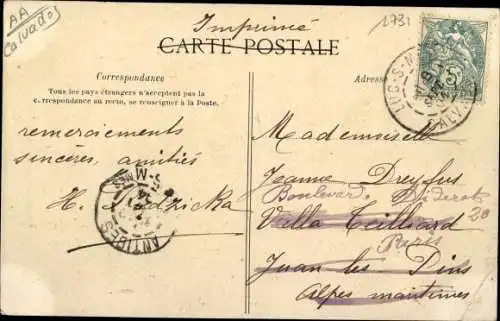 AA
Calvados
Imprimé
1731
CARTE POSTALE
Correspondance
Tous les pays étrangers n'acceptent pas la
correspondance au recto, se renseigner à la Poste.
Adresse
LUC-S-M
CALV
5
remerciements
sincères, amitiés
H.
ANTIBES
Mademoiselle
Jeanne Dreyfus
Boulevard Diderot
20
Villa Teilliard
Paris
Juan les Pins
Alpes maritimes